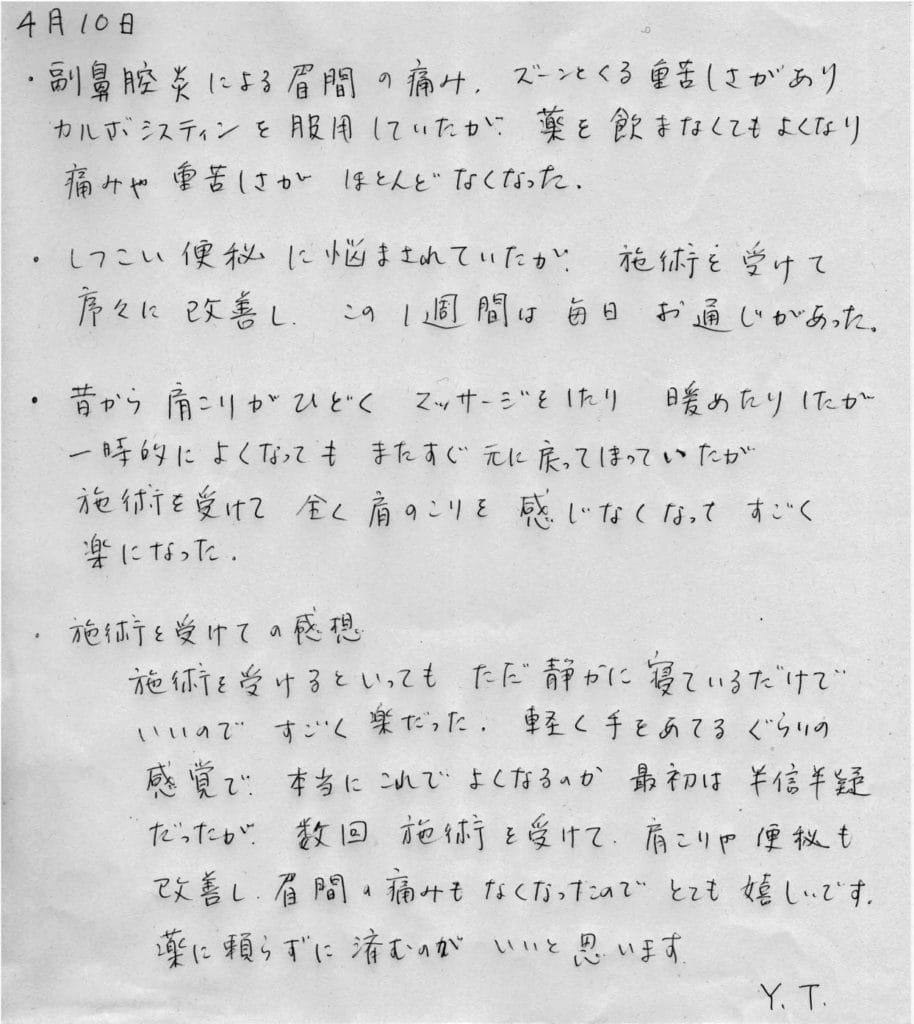 4月10日
・副鼻腔炎による眉間の痛み、ズーンとくる重苦しさがあり
カルボシスティンを服用していたが、薬を飲まなくてもよくなり
痛みや重苦しさがほとんどなくなった。
・しつこい便秘に悩まされていたが、施術を受けて
序々に改善し、この1週間は毎日お通じがあった。
・昔から肩こりがひどくマッサージをしたり暖めたりしたが
一時的によくなってもまたすぐ元に戻ってしまっていたが
施術を受けて全く肩のこりを感じなくなってすごく
楽になった。
・施術を受けての感想
施術を受けるといってもただ静かに寝ているだけで
いいのですごく楽だった。軽く手をあてるぐらいの
感覚で、本当にこれでよくなるのか最初は半信半疑
だったが、数回施術を受けて、肩こりや便秘も
改善し、眉間の痛みもなくなったのでとても嬉しいです。
薬に頼らずに済むのがいいと思います。
Y.T.